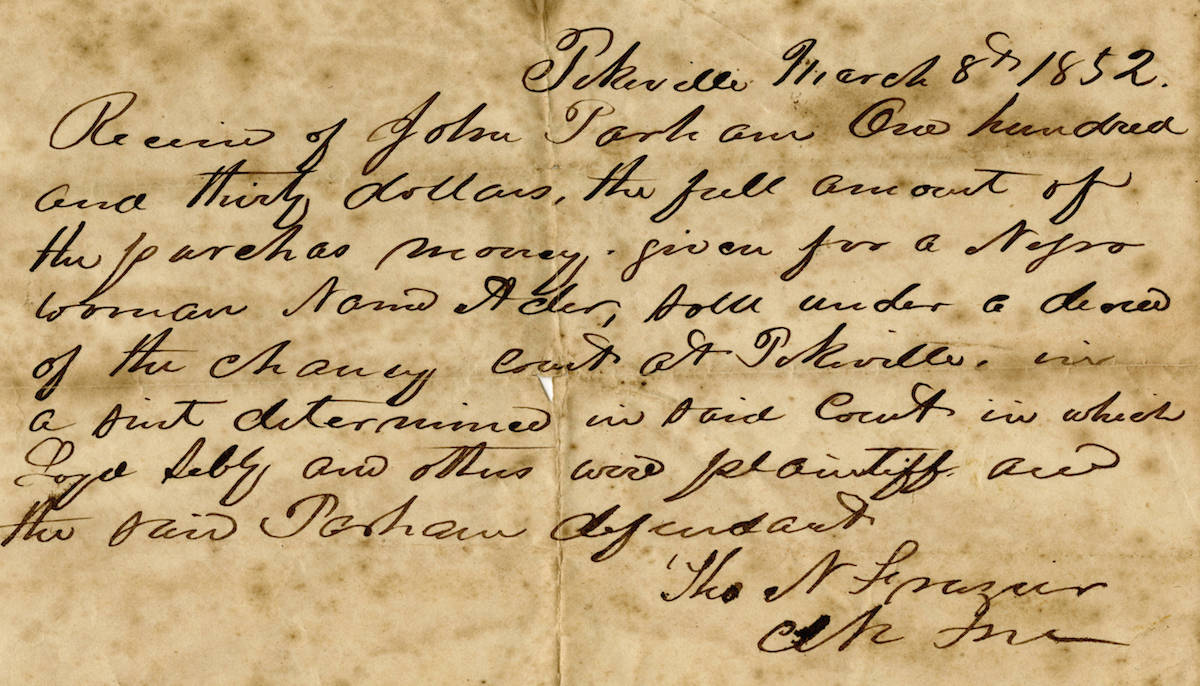 Pikeville March 8th 1852.
Receivd of John Parham One hundred
and thirty dollars, the full amout of
the purchas money. given for a Negro
woman Namd Ader, sold under a decree
of the chancy Court at Pikeville. in
a suit determined in said Court in which
and others were plaintiff and
the said Parham defendant
Tho N Frazier